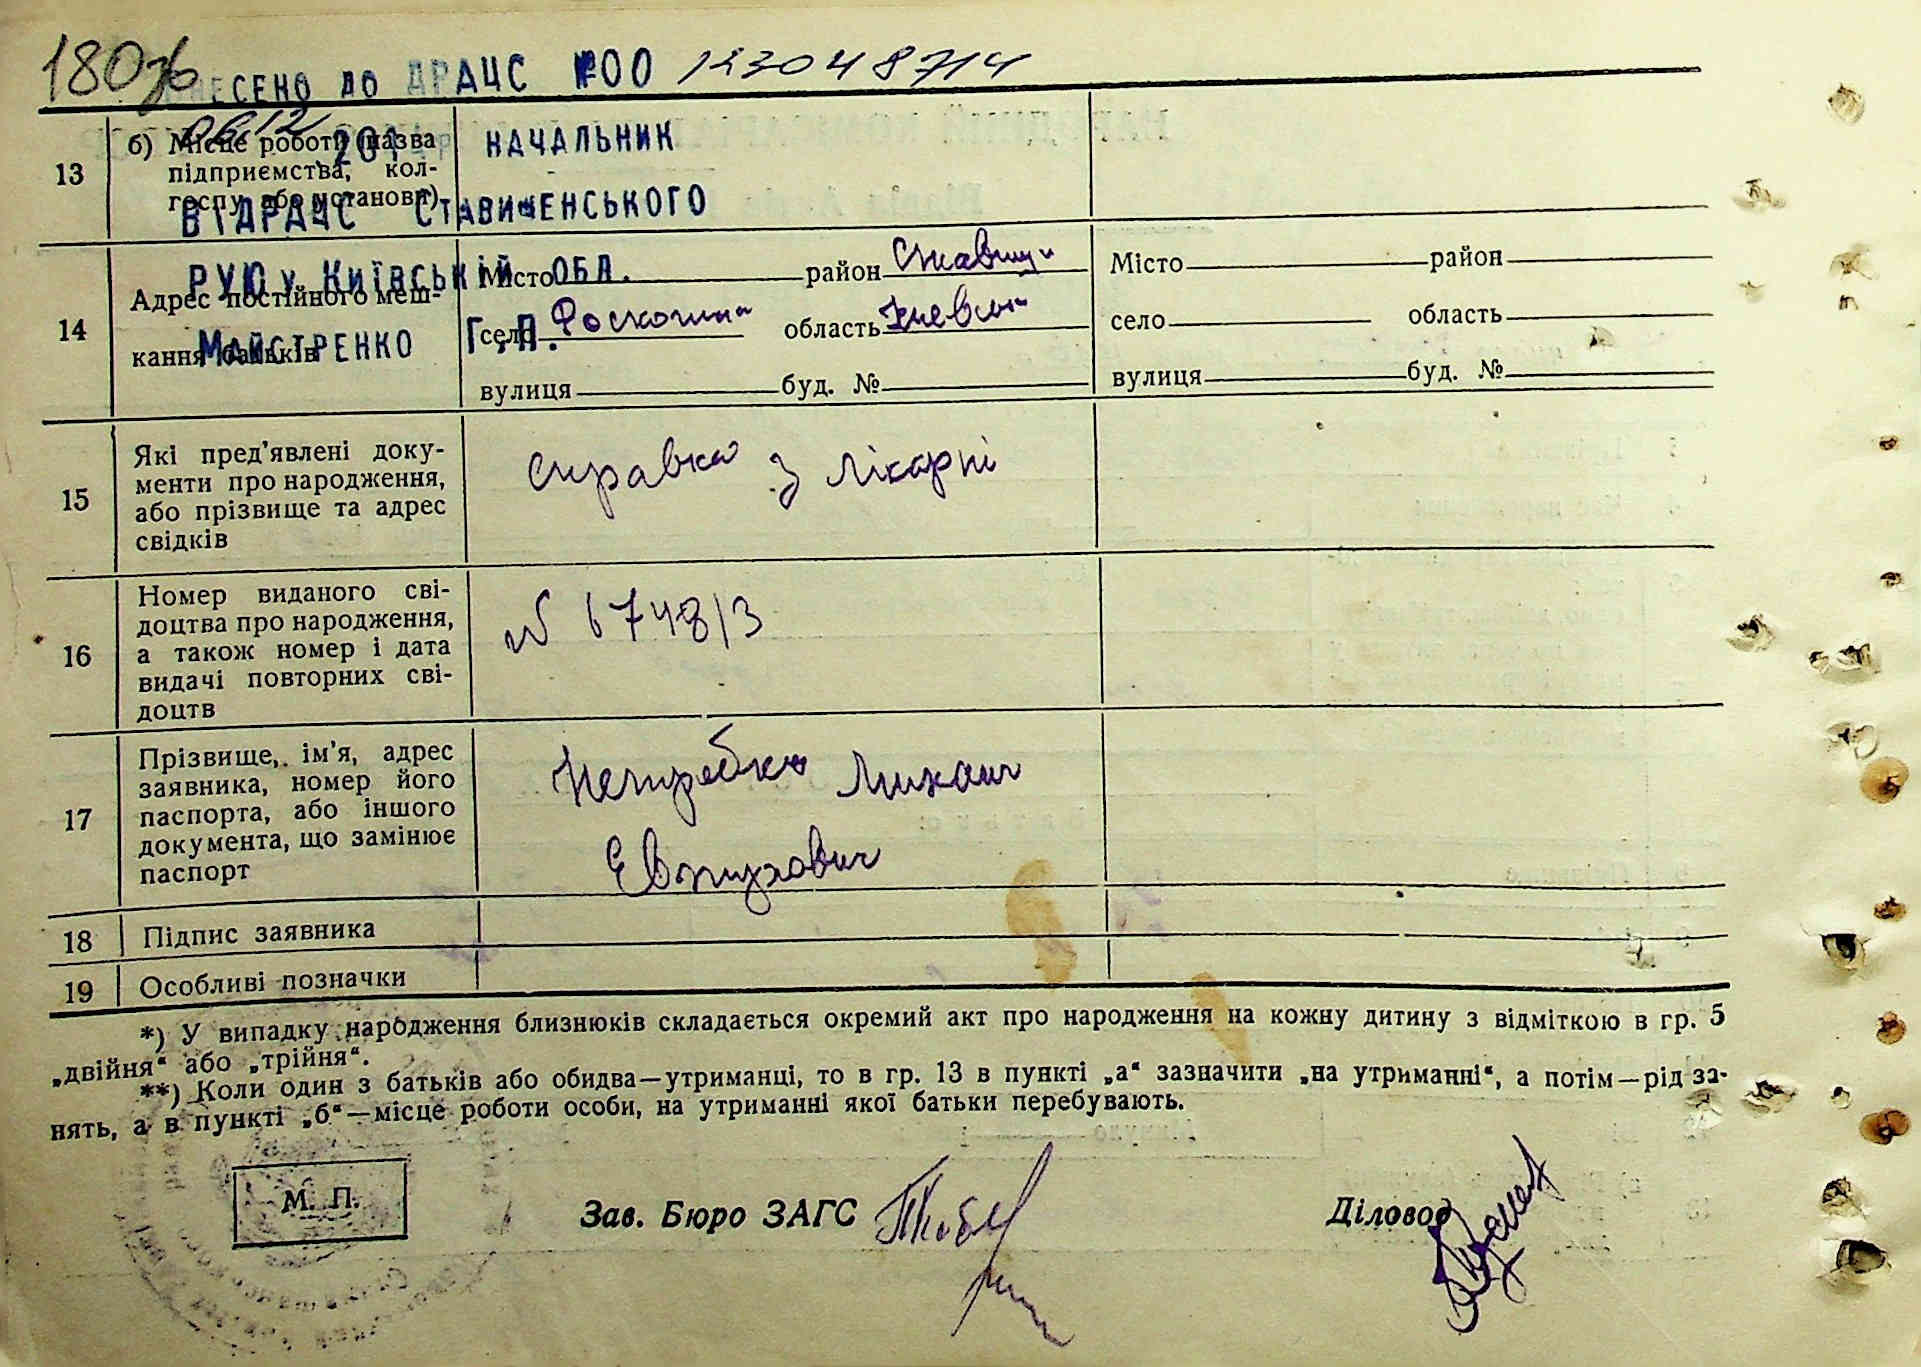 180зв
ВНЕСЕНО ДО ДРАЦС №00 123048714
06.12 201
НАЧАЛЬНИК
ВІДРАЦС СТАВИЩЕНСЬКОГО
РУЮ у Київській ОБЛ.
МАЙСТРЕНКО Г.П.
13 б) Місце роботи (назва
підприємства, кол-
госпу або установи)
14 Адрес постійного меш-
кання батьків
Місто район Ставищ
село область Киевськ
вулиця буд. №
Місто район
село область
вулиця буд. №
15 Які пред'явлені доку-
менти про народження,
або прізвище та адрес
свідків
справка з лікарні
16 Номер виданого сві-
доцтва про народження,
а також номер і дата
видачі повторних сві-
доцтв
№ 6748/3
17 Прізвище, ім'я, адрес
заявника, номер його
паспорта, або іншого
документа, що замінює
паспорт
Непребка Михаил
Евтухович
18 Підпис заявника
19 Особливі позначки
*) У випадку народження близнюків складається окремий акт про народження на кожну дитину з відміткою в гр. 5
„двійня“ або „трійня“.
**) Коли один з батьків або обидва—утриманці, то в гр. 13 в пункті „а“ зазначити „на утриманні“, а потім—рід за-
нять, а в пункті „б“—місце роботи особи, на утриманні якої батьки перебувають.
М. П.
Зав. Бюро ЗАГС
Діловод